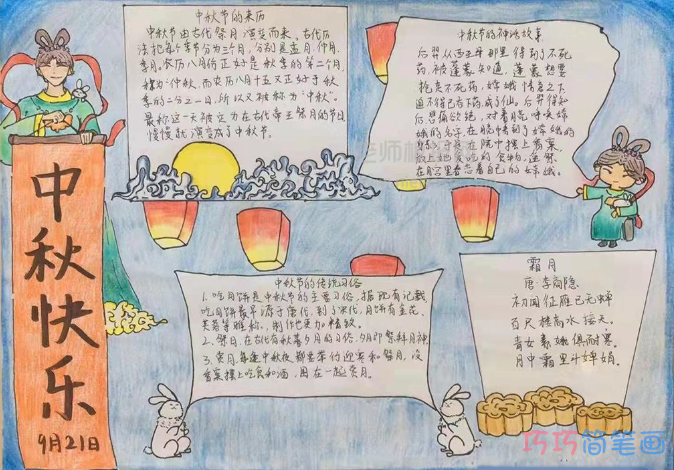 中秋快乐
9月21日
中秋节的来历
中秋节由古代祭月演变而来，古代历
法把每个季节分为三个月，分别是孟月、仲月、
季月。农历八月份正好是秋季的第二个月
称为"仲秋，而农历八月十五又正好于秋
季的二分之一日，所以又被称为"中秋"。
最称这一天被定为在古代帝王祭月的节日
慢慢就演变成了中秋节。
中秋节的神话故事
后羿从西王母那里得到了不死
药，被蓬蒙知道，蓬蒙想要
抢走不死药，嫦娥情急之下
逼不得已吞下药成了仙。后羿得知
后悲痛欲绝，对着月亮呼唤嫦
娥的名字，在月亮中看到了嫦娥的
在月宫里看着自己的嫦娥。
中秋节的传统习俗
1、吃月饼是中秋节的主要习俗，据现有记载
吃月饼最早源于唐代，到了宋代，月饼有金花、
芙蓉等雅称，制作也更加精致。
2、祭月、在古代有秋暮夕月的习俗、夕月即祭拜月神
3、赏月、每逢中秋夜都要举行迎寒和祭月、设
香案摆上吃食和酒，围在一起赏月。
霜月
唐·李商隐
初闻征雁已无蝉
百尺楼高水接天。
青女素娥俱耐寒。
月中霜里斗婵娟。
巧巧简笔画